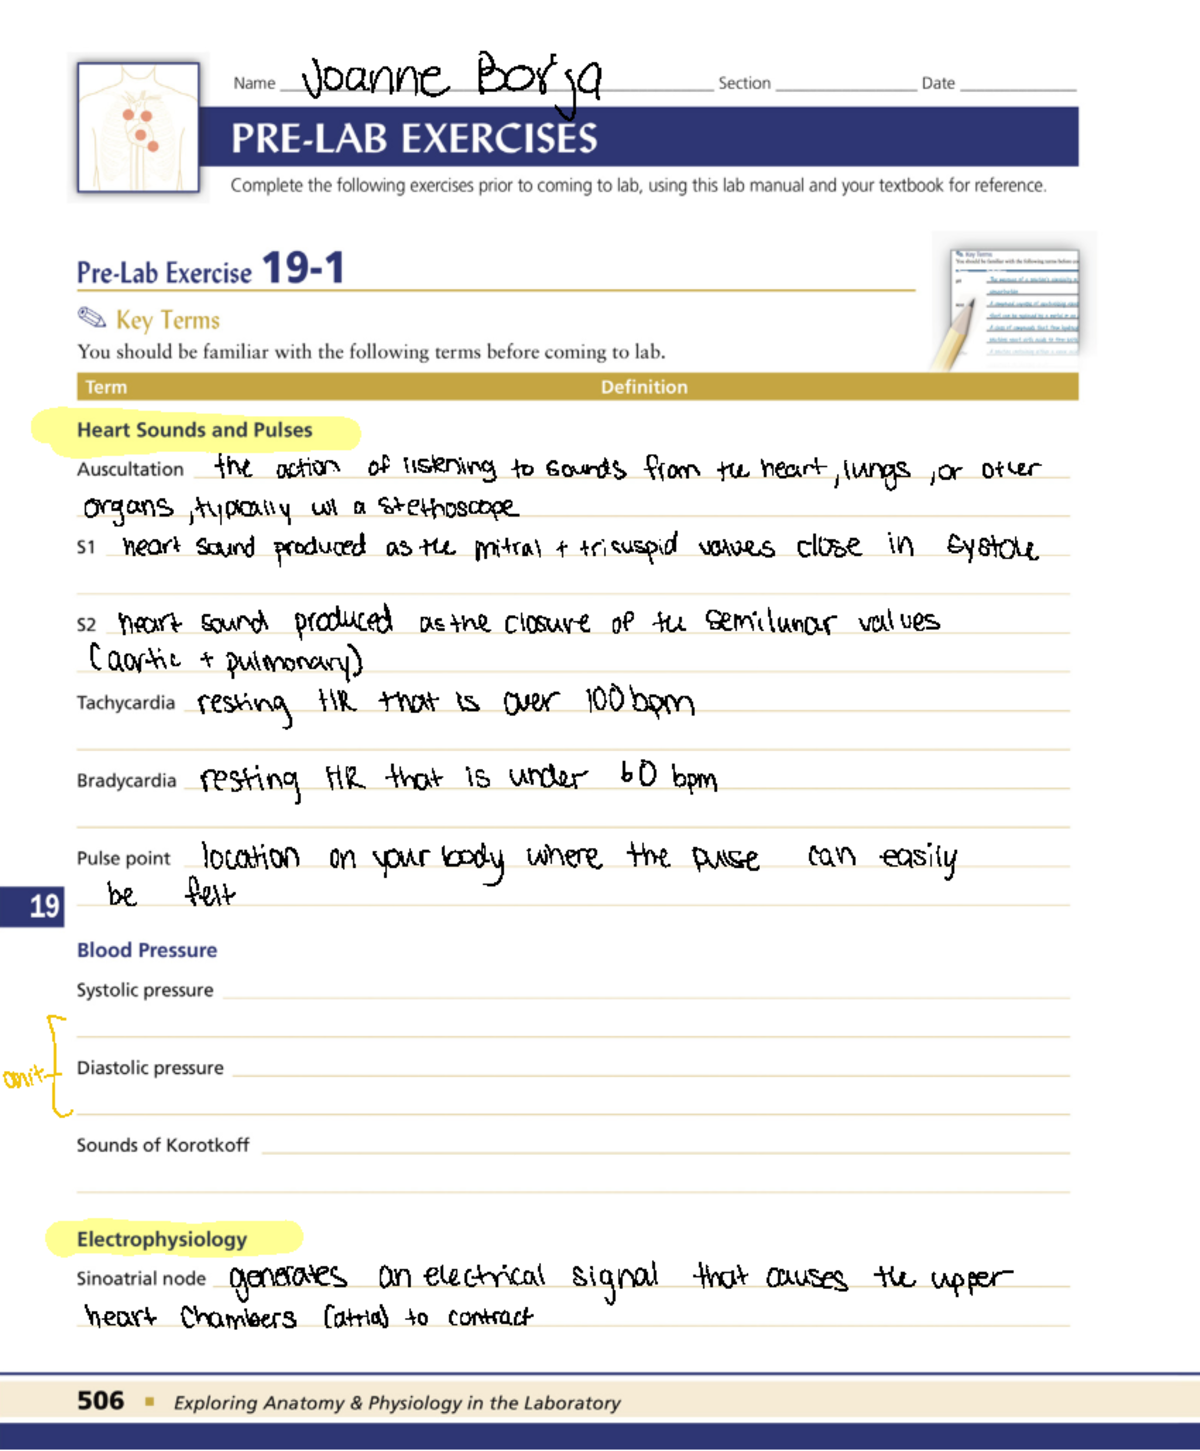 Name Joanne Borja Section Date
PRE-LAB EXERCISES
Complete the following exercises prior to coming to lab, using this lab manual and your textbook for reference.
Pre-Lab Exercise 19-1
Key Terms
You should be familiar with the following terms before coming to lab.
Term Definition
Heart Sounds and Pulses
Auscultation the action of listening to sounds from the heart, lungs, or other
organs, typically w/ a stethoscope
S1 heart sound produced as the mitral + tricuspid valves close in systole
S2 heart sound produced as the closure of the semilunar valves
(aortic + pulmonary)
Tachycardia resting HR that is over 100 bpm
Bradycardia resting HR that is under 60 bpm
Pulse point location on your body where the pulse can easily
be felt
19
Blood Pressure
Systolic pressure
omit
Diastolic pressure
Sounds of Korotkoff
Electrophysiology
Sinoatrial node generates an electrical signal that causes the upper
heart chambers (atria) to contract
506 ▪ Exploring Anatomy & Physiology in the Laboratory